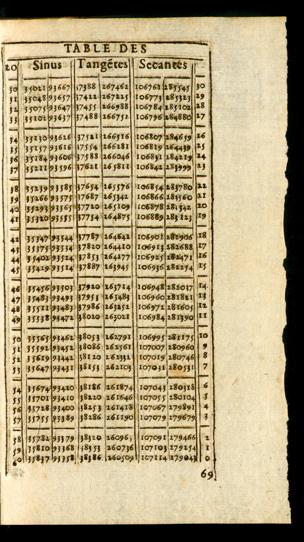 TABLE DES
20 Sinus Tangétes Secantes
30 35021 93667 37388 267462 106761 285545 30
31 35048 93657 37422 267225 106773 285323 29
32 35075 93647 37455 266988 106784 285102 28
33 35102 93637 37488 266752 106796 284880 27
34 35130 93626 37521 266516 106807 284659 26
35 35157 93616 37554 266281 106819 264439 25
36 35184 93606 37588 266046 106831 284219 24
37 35211 93596 37621 265811 106842 283999 23
38 35239 93585 37654 265576 106854 283780 22
39 35266 93575 37687 265342 106866 283560 21
40 35293 93565 37720 265109 106878 283342 20
41 35320 93555 37754 264875 106889 283123 19
42 35347 93544 37787 264642 106901 282906 18
43 35375 93534 37820 264410 106913 282688 17
44 35402 93524 37853 264177 106925 282471 16
45 35429 93514 37887 263945 106936 282254 15
46 35456 93503 37920 263714 106948 282037 14
47 35483 93493 37953 263483 106960 281821 13
48 35511 93483 37986 263252 106972 281605 12
49 35538 93472 38020 263021 106984 281390 11
50 35565 93462 38053 262791 106995 281175 10
51 35592 93452 38086 262561 107007 280960 9
52 35619 93441 38120 262332 107019 280746 8
53 35647 93431 38153 262103 107031 280531 7
54 35674 93420 38186 261874 107043 280318 6
55 35701 93410 38220 261646 107055 280104 5
56 35728 93400 38253 261418 107067 279891 4
57 35755 93389 38286 261190 107079 279679 3
58 35782 93379 38320 26096 107091 279466 2
59 35810 93368 38353 260736 107103 279254 1
60 35837 93358 38386 260509 107114 279043 0
69